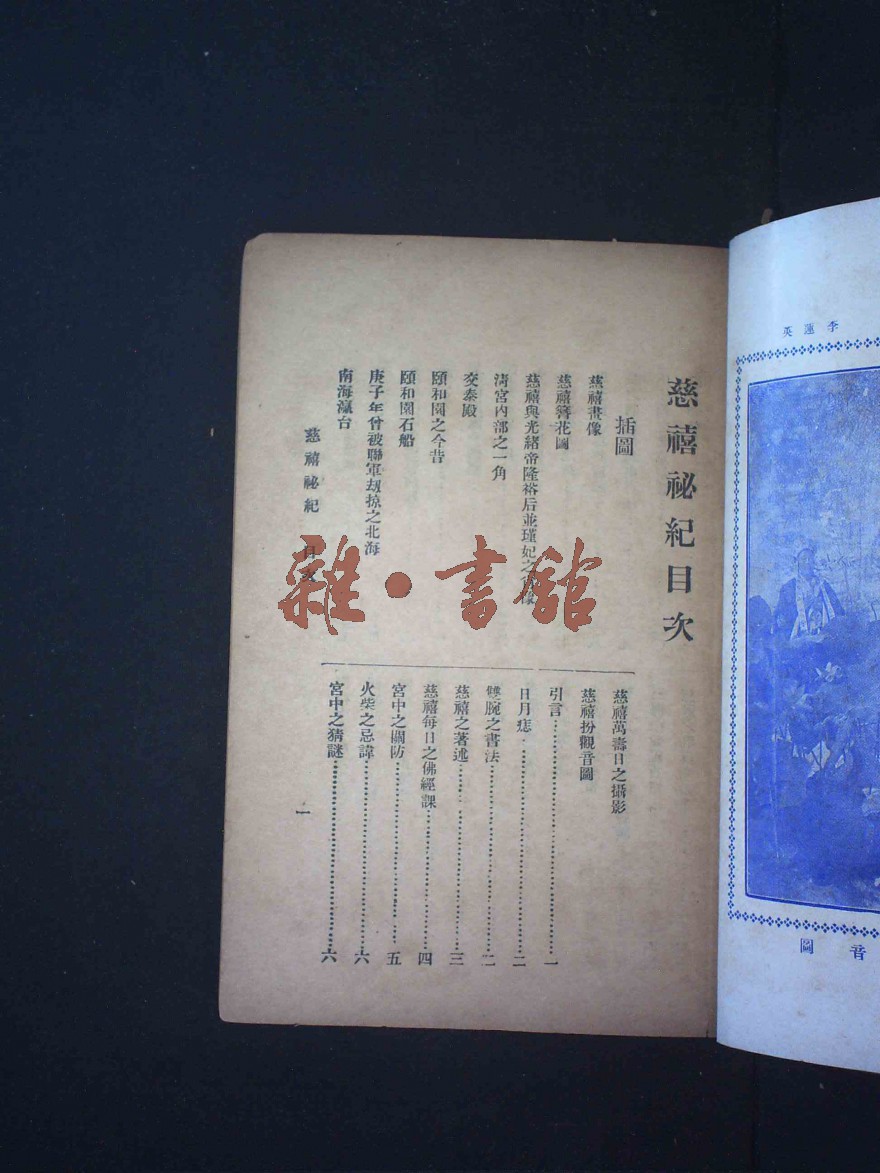 慈禧祕紀目次
插圖
慈禧畫像
慈禧簪花圖
慈禧與光緒帝隆裕后並瑾妃之
清宮內部之一角
交泰殿
頤和園之今昔
頤和園石船
庚子年曾被聯軍刼掠之北海
南海瀛台
慈禧萬壽日之攝影
慈禧扮觀音圖
引言⋯⋯一
日月痣⋯⋯二
雙腕之書法⋯⋯二
慈禧之著述⋯⋯三
慈禧每日之佛經課⋯⋯四
宮中之關防⋯⋯五
火柴之忌諱⋯⋯六
宮中之猜謎⋯⋯六
慈禧祕紀 目次
一
李蓮英
音圖
雜·書館